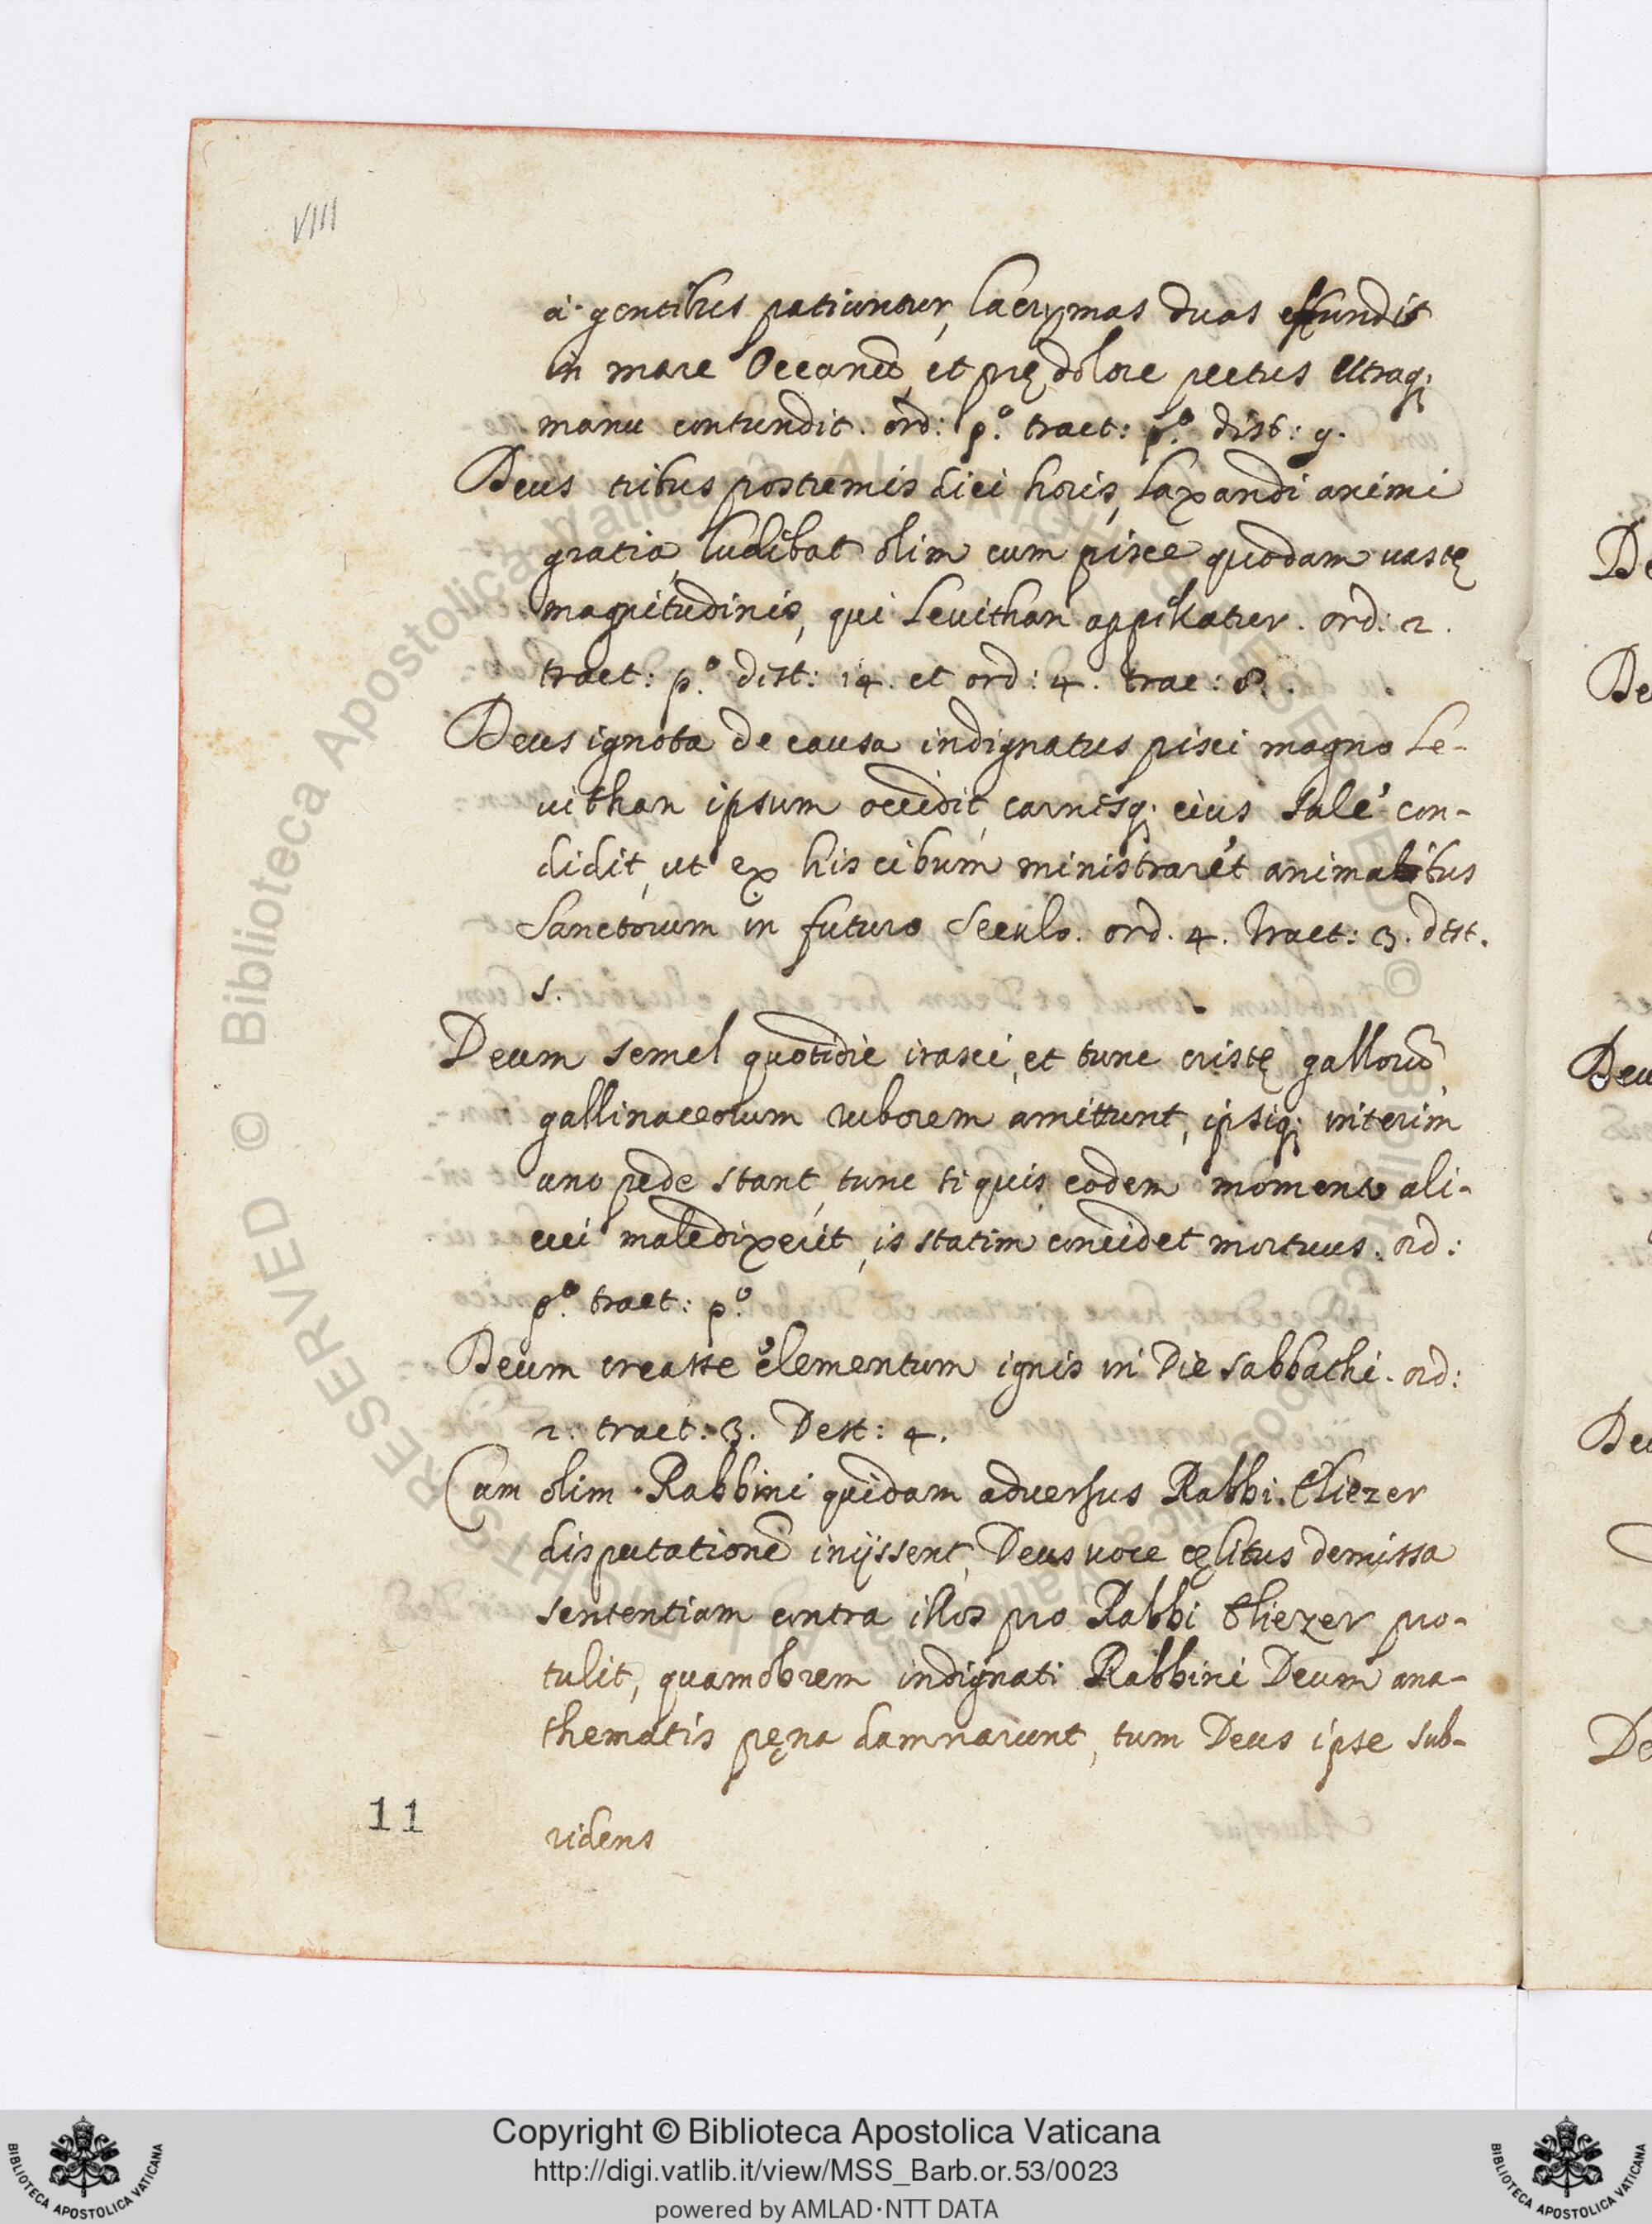 VIII
à gentibus patiuntur, lacrymas duas effundit
in mare Oceanũ, et prę dolore pectus utraq;
manu contundit. ord: p.º tract: p.º dist: 9.
Deus tribus postremis diei horis, laxandi animi
gratia, ludebat olim cum pisce quodam uastę
magnitudinis, qui Leuithan appellatur. ord: 2.
tract: p.º dist: 14. et ord: 4. trac: 8.
Deus ignota de causa indignatus pisci magno Le-
uithan ipsum occidit carnisq; eius sale con-
didit, ut ex his cibum ministraret animabus
Sanctorum in futuro seculo. ord. 4. tract: 3. dist.
5.
Deum semel quotidie irasci, et tunc cristę gallorũ
gallinaceorum ruborem amittunt, ipsiq; interim
uno pede stant, tunc si quis eodem momento ali-
cui maledixerit, is statim concidet mortuus. ord:
p.º tract: p.º
Deum creasse elementum ignis in Die sabbathi. ord:
2: tract: 3. Dist: 4.
Cum olim Rabbini quidam aduersus Rabbi Eliezer
disputationẽ inijssent, Deus uoce cęlitus demissa
sententiam contra illos pro Rabbi Eliezer pro-
tulit, quamobrem indignati Rabbini Deum ana-
thematis pęna damnarunt, tum Deus ipse sub-
ridens
11
De
De
Deu
Deu
De
© Biblioteca Apostolica Vaticana ALL RIGHTS RESERVED
Copyright © Biblioteca Apostolica Vaticana
http://digi.vatlib.it/view/MSS_Barb.or.53/0023
powered by AMLAD·NTT DATA
BIBLIOTECA APOSTOLICA VATICANA
BIBLIOTECA APOSTOLICA VATICANA